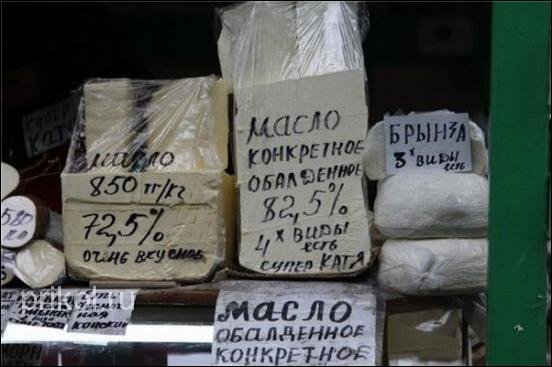 СУПЕР
КАТЯ
МАСЛО
850 тг/кг
72,5%
ОЧИНЬ ВКУСНОЕ
МАСЛО
КОНКРЕТНОЕ
ОБАЛДЕННОЕ
82,5%
4х ВИДЫ
ЕСТЬ
СУПЕР КАТЯ
БРЫНЗА
3х ВИДЫ
ЕСТЬ
580
prikol.ru
МАСЛО
ОБАЛДЕННОЕ
КОНКРЕТНОЕ